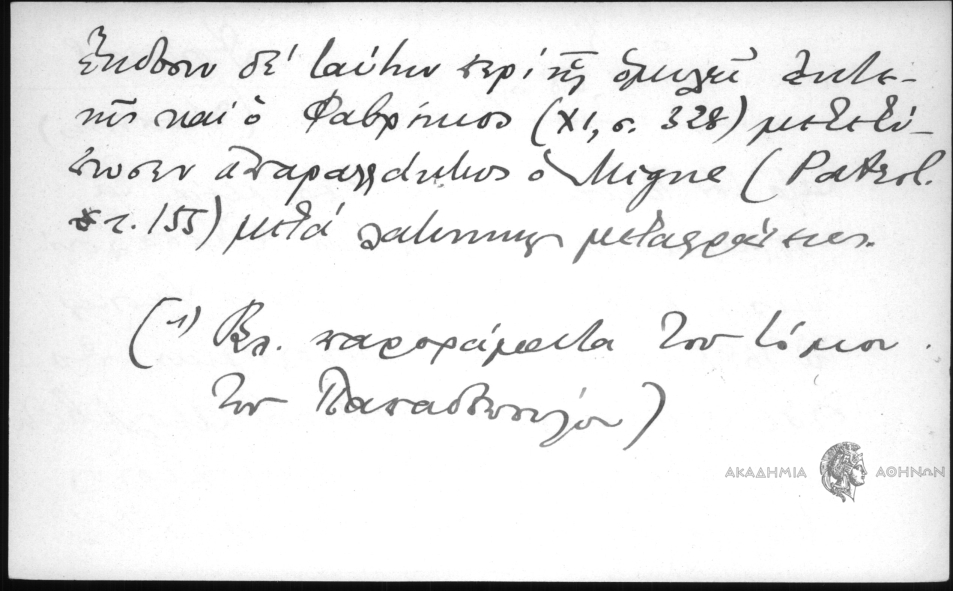 ἔκδοσιν δέ ταύτην περί τῆς ὁμιλεῖ ἐκτε-
νῶς καί ὁ Φαβρίκιος (XI, σ. 328) μετετύ-
πωσεν ἀπαραλλάκτως ὁ Migne (Patrol.
τ. 155) μετά λατινικῆς μεταφράσεως.
(1) Βλ. παροράματα του τόμου
του Παπαδοπούλου)
ΑΚΑΔΗΜΙΑ ΑΘΗΝΩΝ